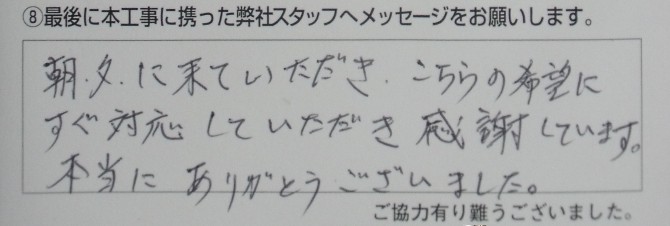 ⑧最後に本工事に携った弊社スタッフへメッセージをお願いします。
朝.夕.に来ていただき.こちらの希望に
すぐ対応していただき感謝しています。
本当にありがとうございました。
ご協力有り難うございました。